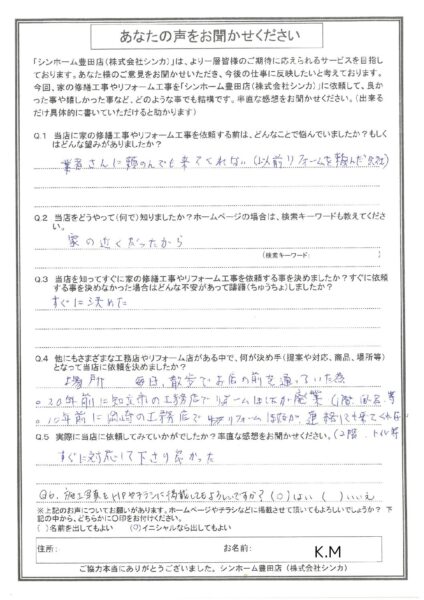 あなたの声をお聞かせください
「シンホーム豊田店(株式会社シンカ)」は、より一層皆様のご期待に応えられるサービスを目指し
ております。あなた様のご意見をお聞かせいただき、今後の仕事に反映したいと考えております。
今回、家の修繕工事やリフォーム工事を「シンホーム豊田店(株式会社シンカ)」に依頼して、良か
った事や嬉しかった事など、どのような事でも結構です。率直な感想をお聞かせください。(出来るな
だけ具体的に書いていただけると助かります)
Q.1 当店に家の修繕工事やリフォーム工事を依頼する前は、どんなことで悩んでいましたか?もしく
はどんな望みがありましたか?
業者さんに頼のんでも来てくれない(以前リフォームを頼んだ
Q.2 当店をどうやって(何で)知りましたか?ホームページの場合は、検索キーワードも教えてくだ
さい。
家の近くだったから
(検索キーワード: )
Q.3 当店を知ってすぐに家の修繕工事やリフォーム工事を依頼する事を決めましたか?すぐに依頼
する事を決めなかった場合はどんな不安があって躊躇(ちゅうちょ)しましたか?
すぐに決れた
Q.4 他にもさまざまな工務店やリフォーム店がある中で、何が決め手(提案や対応、商品、場所等)
となって当店に依頼を決めましたか?
場所 毎日、散歩でお店の前を通っていた為
。20年前に知立市の工務店でリフォームしたが廃業
。10年前に岡崎の工務店で リフォームしたが、連絡しても来てくれない
Q.5 実際に当店に依頼してみていかがでしたか?率直な感想をお聞かせください。(2階、トイレ等
すぐに対応して下さり良かった
Q6. 施工写真をHPやチラシに掲載してもよろしいですか? (○)はい ( )いいえ
※上記のお声についてお願いがあります。ホームページやチラシなどに掲載させて頂いてもよろしいでしょうか? 下
記の中から、どちらかに○印をお付けください。
( )名前を出してもよい (○)イニシャルなら出してもよい
住所: お名前: K.M
ご協力本当にありがとうございました。シンホーム豊田店 (株式会社シンカ)